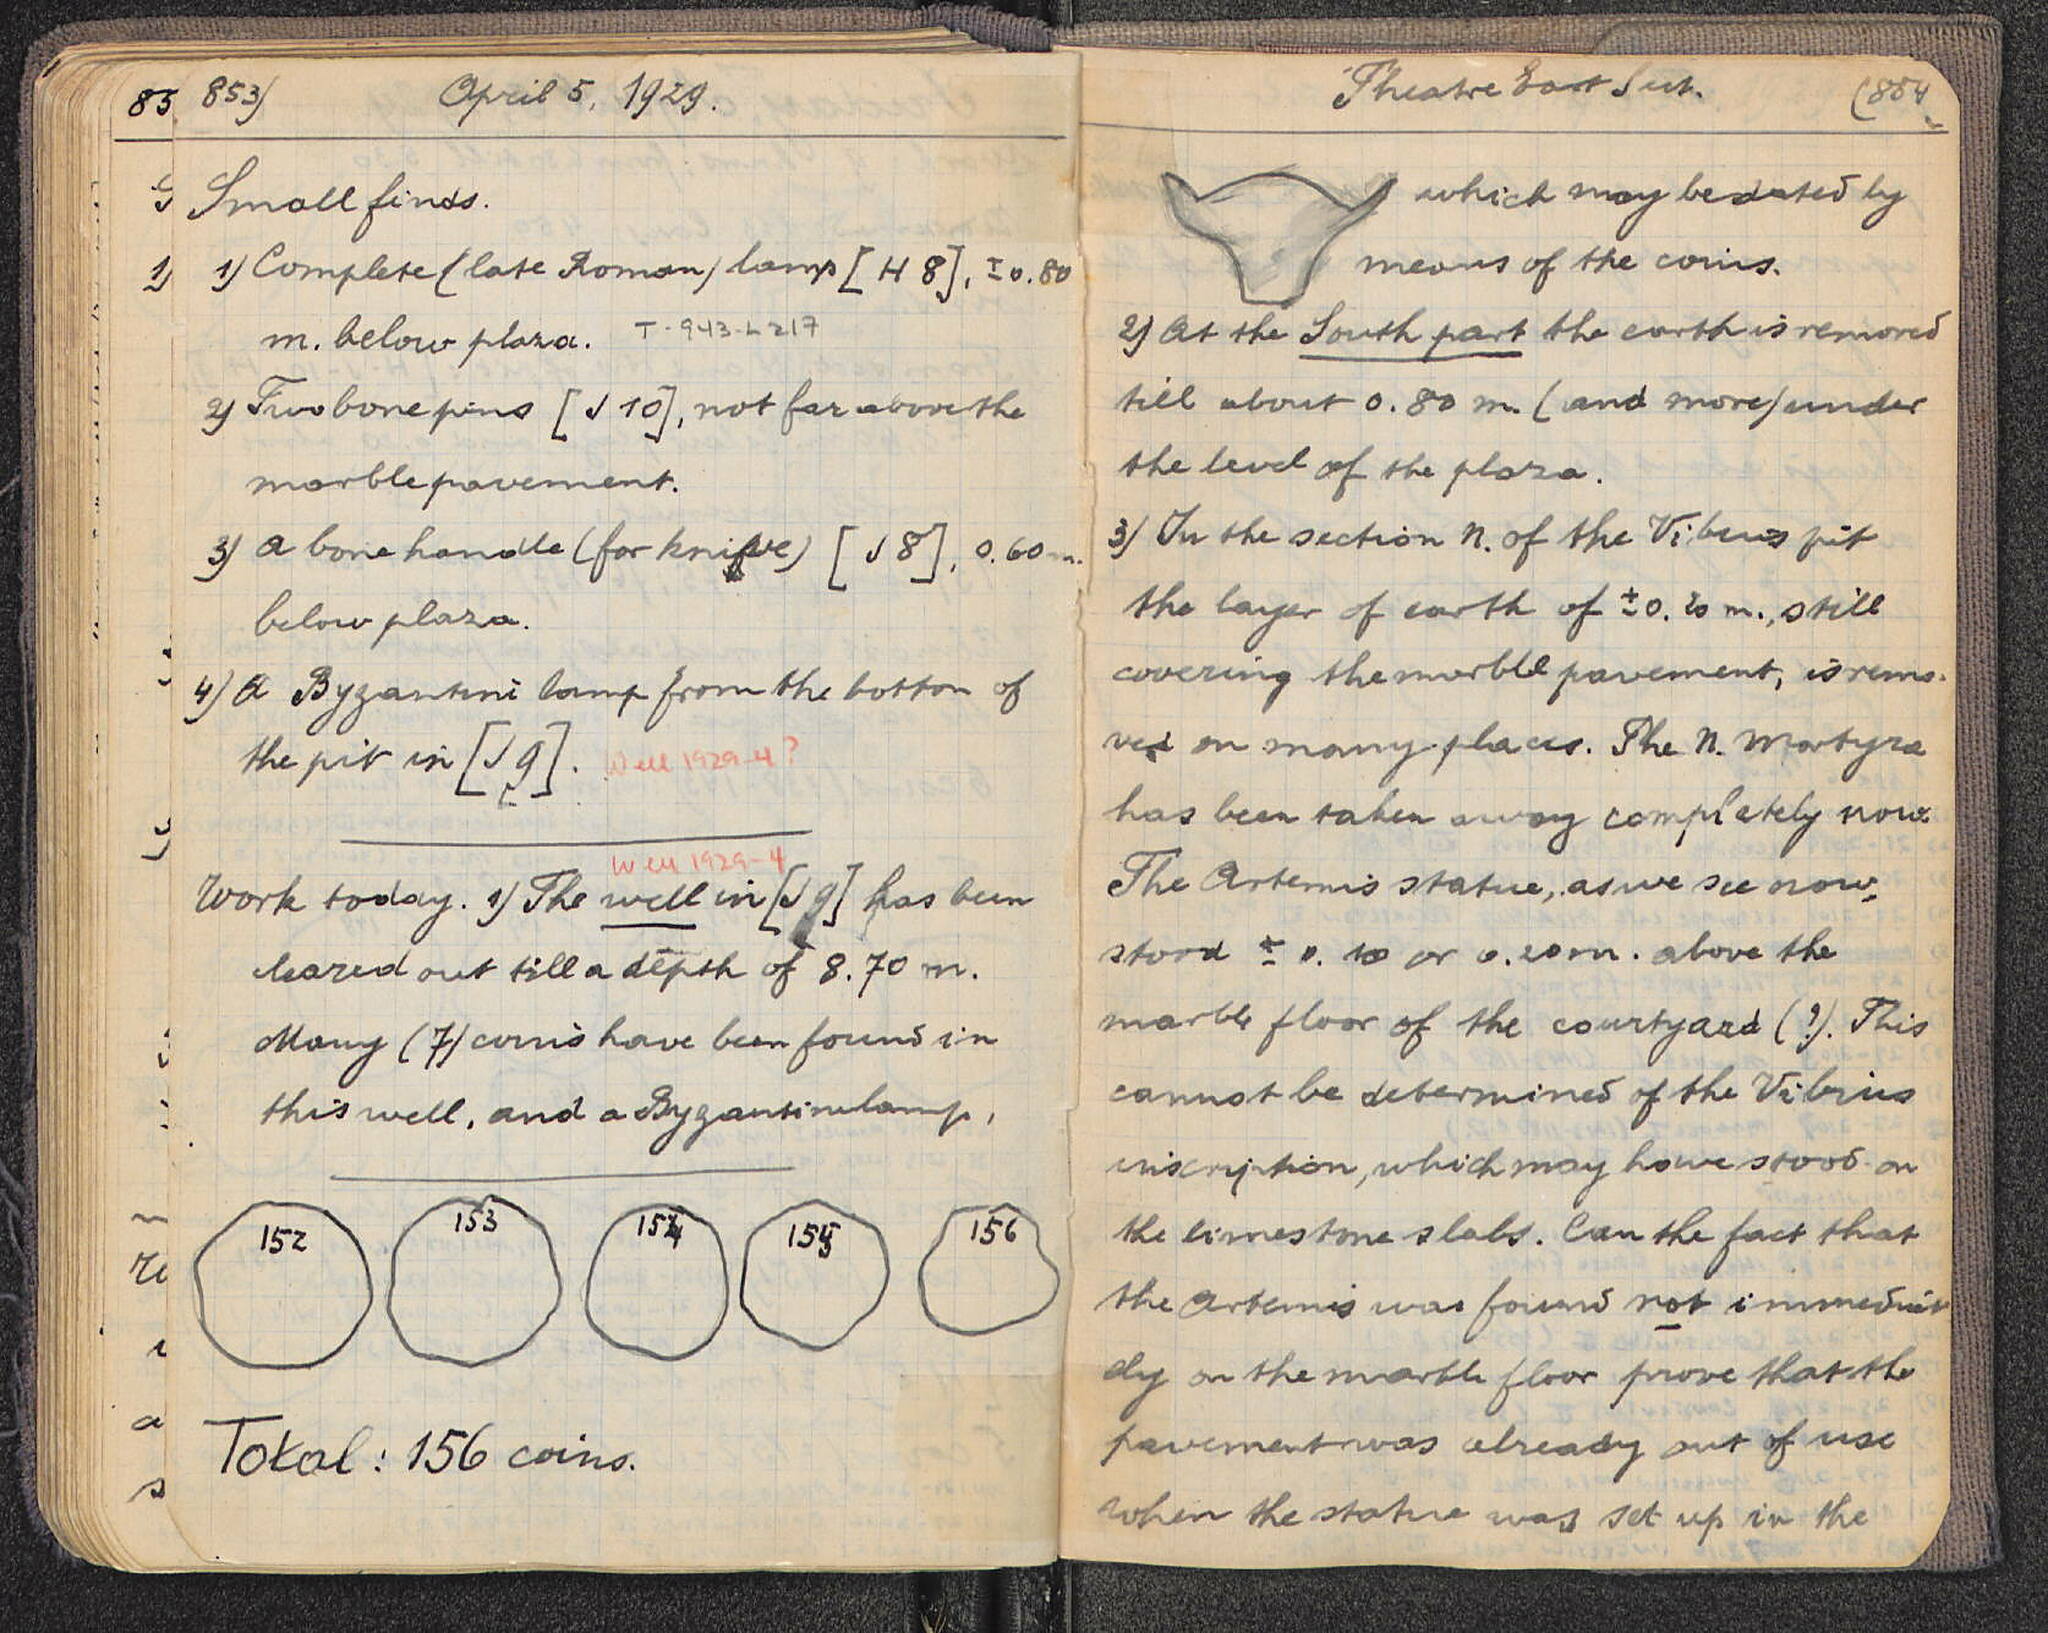 853) April 5, 1929.
Small finds.
1) Complete (late Roman) lamp [H 8], ±0.80
m. below plaza. T-943-L217
2) Two bone pins [J 10], not far above the
marble pavement.
3) A bone handle (for knife) [J 8], 0.60 m.
below plaza.
4) A Byzantine lamp from the bottom of
the pit in [J 9]. Well 1929-4?
Well 1929-4
Work today. 1) The well in [J 9] has been
cleared out till a depth of 8.70 m.
Many (7) coins have been found in
this well, and a Byzantine lamp,
152 153 154 155 156
Total: 156 coins.
Theatre East Sect. (854
which may be dated by
means of the coins.
2) At the South part the earth is removed
till about 0.80 m. (and more) under
the level of the plaza.
3) In the section N. of the Vibius pit
the layer of earth of ±0.20 m., still
covering the marble pavement, is remo-
ved on many places. The N. Martyra
has been taken away completely now.
The Artemis statue, as we see now,
stood ± 0.10 or 0.20 m. above the
marble floor of the courtyard (?). This
cannot be determined of the Vibius
inscription, which may have stood on
the limestone slabs. Can the fact that
the Artemis was found not immediate-
ly on the marble floor prove that the
pavement was already out of use
when the statue was set up in the